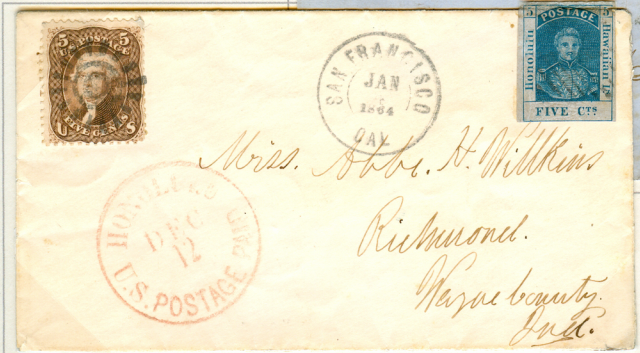 5 5
U.S. POSTAGE
U FIVE CENTS S
SAN FRANCISCO
JAN
1864
CAL
5 POSTAGE 5
Honolulu
Hawaiian Is.
FIVE CTS
HONOLULU
DEC
12
U.S. POSTAGE PAID
Miss. Abbe. H. Willkins
Richmond.
Wayne County.
Ind.